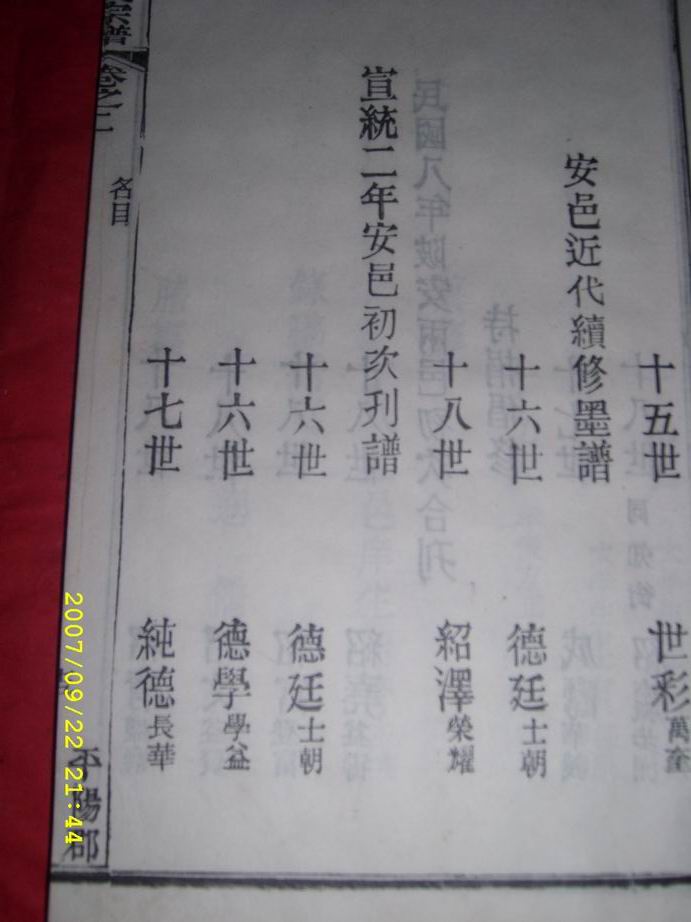 十五世 世彩 萬奎
安邑近代續修墨譜
十六世 德廷 士朝
十八世 紹澤 榮耀
宣統二年安邑初次刋譜
十六世 德廷 士朝
十六世 德學 學益
十七世 純德 長華
宗譜 卷之二 名目 平陽郡
2007/09/22 21:44